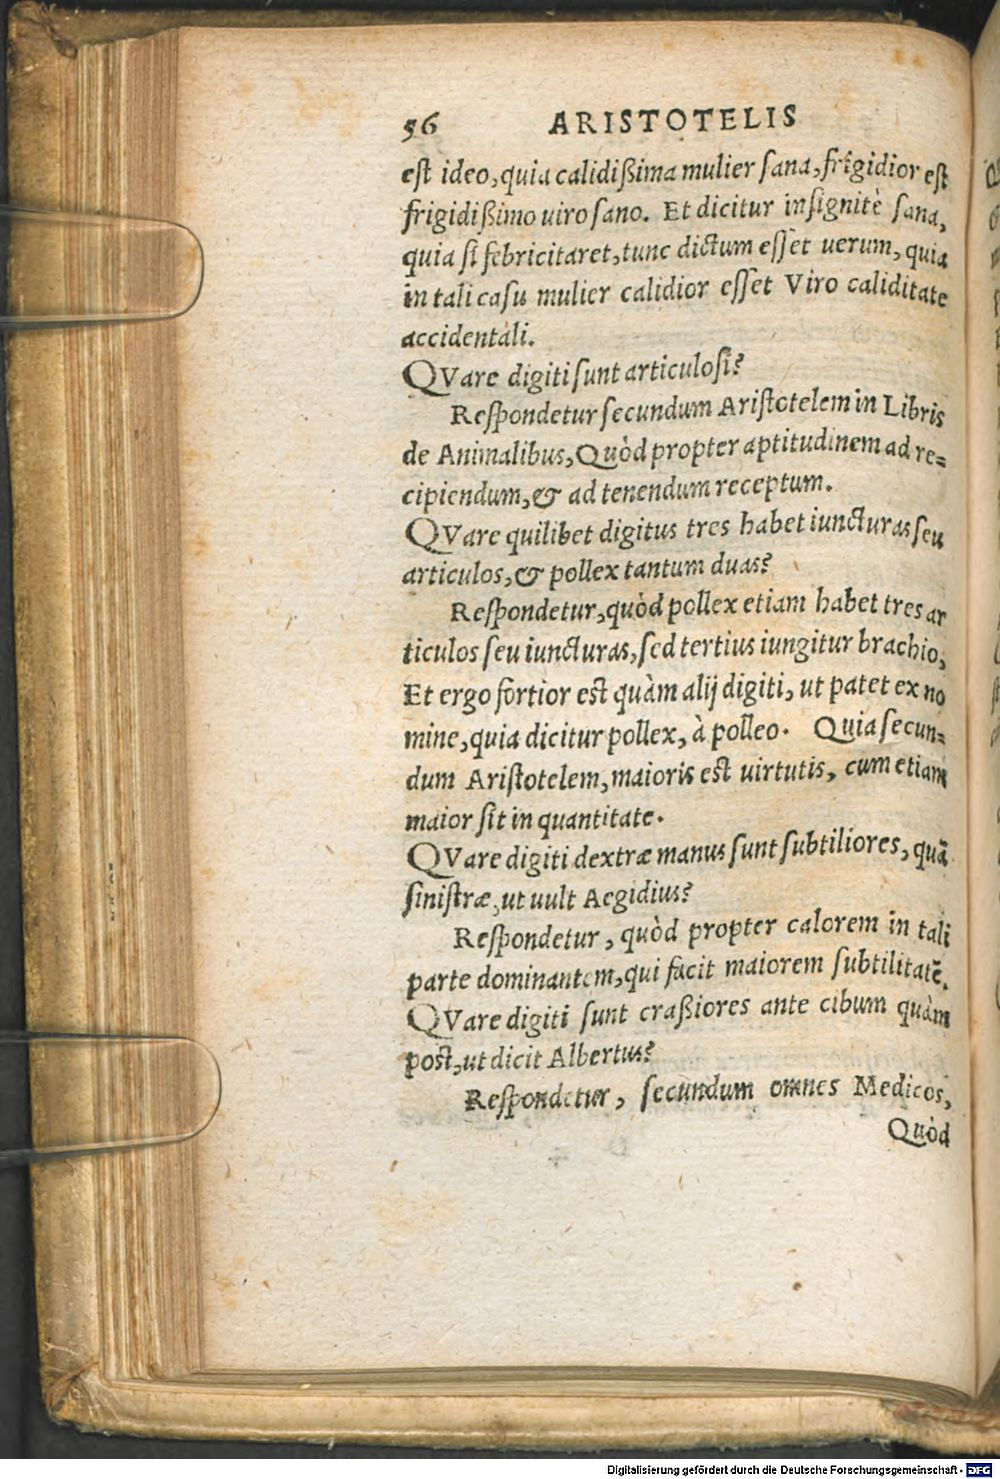 56 ARISTOTELIS
est ideo, quia calidißima mulier sana, frigidior est
frigidißimo uiro sano. Et dicitur insignitè sana,
quia si febricitaret, tunc dictum esset uerum, quia
in tali casu mulier calidior esset Viro caliditate
accidentali.
QVare digiti sunt articulosi?
Respondetur secundum Aristotelem in Libris
de Animalibus, Quòd propter aptitudinem ad re=
cipiendum, & ad tenendum receptum.
QVare quilibet digitus tres habet iuncturas seu
articulos, & pollex tantum duas?
Respondetur, quòd pollex etiam habet tres ar
ticulos seu iuncturas, sed tertius iungitur brachio,
Et ergo fortior est quàm alij digiti, ut patet ex no
mine, quia dicitur pollex, à polleo. Quia secun=
dum Aristotelem, maioris est uirtutis, cum etiam
maior sit in quantitate.
QVare digiti dextræ manus sunt subtiliores, quã
sinistræ, ut uult Aegidius?
Respondetur, quòd propter calorem in tali
parte dominantem, qui facit maiorem subtilitatẽ.
QVare digiti sunt craßiores ante cibum quàm
post, ut dicit Albertus?
Respondetur, secundum omnes Medicos,
Quòd
Digitalisierung gefördert durch die Deutsche Forschungsgemeinschaft - DFG